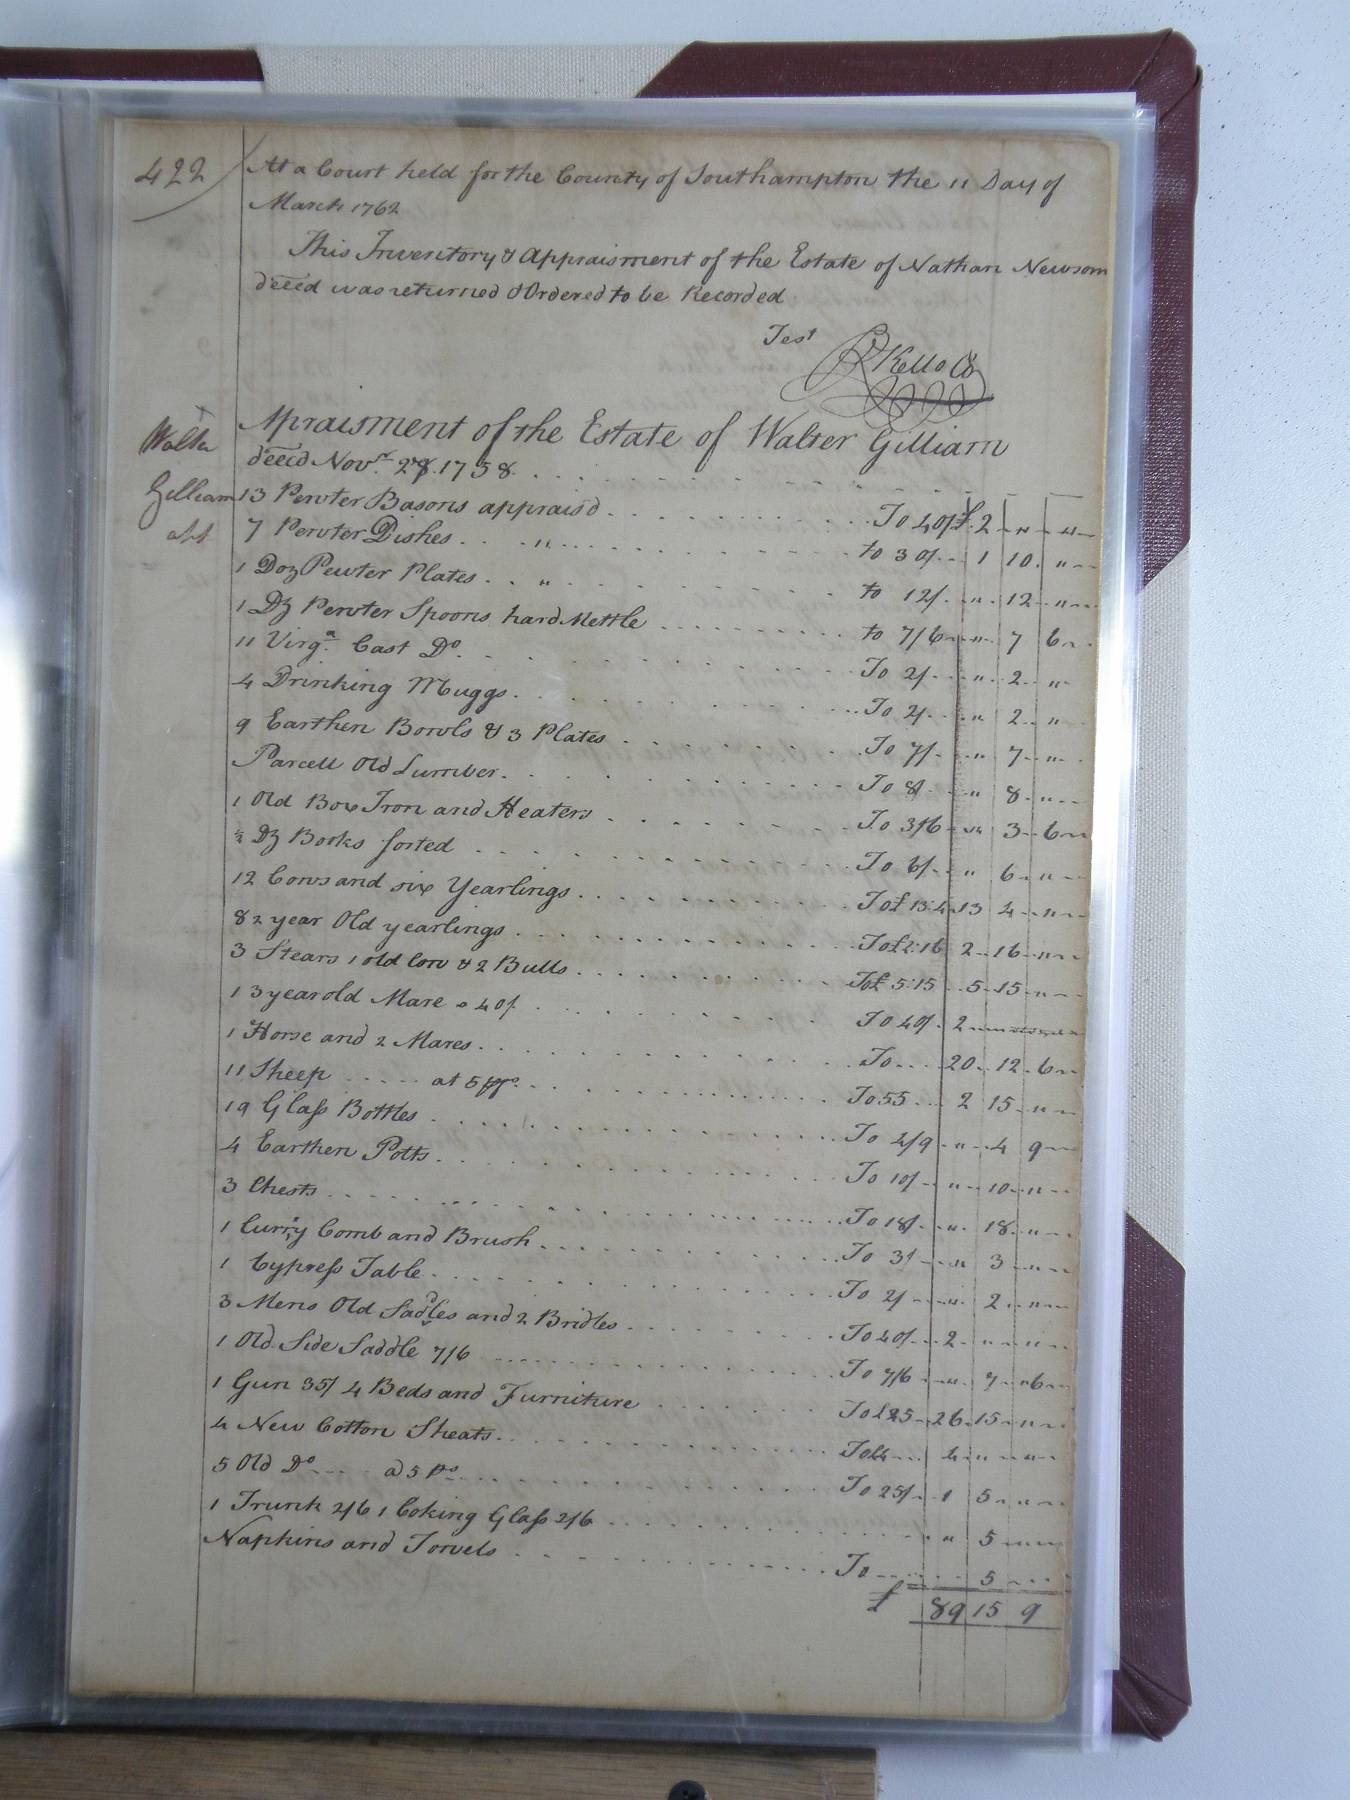 422 At a Court held for the County of Southampton the 11 Day of
March 1762
This Inventory & Appraisment of the Estate of Nathan Newsom
deced was returned & Ordered to be Recorded
Test
Rd Kello Cl
Apraisment of the Estate of Walter Gilliam
Walter
deced Novr. 28. 1758
Gilliam
13 Pewter Basons appraisd To 40/ £ 2 " "
7 Pewter Dishes " to 30/ 1 10 "
1 Doz Pewter Plates " to 12/ " 12 "
1 Dz Pewter Spoons hard Mettle to 7/6 " 7 6
11 Virga. Cast Do. To 2/ " 2 "
4 Drinking Muggs To 2/ " 2 "
9 Earthen Bowls & 3 Plates To 7/ " 7 "
Parcell Old Lumber To 8/ " 8 "
1 Old Box Iron and Heaters To 3/6 " 3 6
½ Dz Books sorted To 6/ " 6 "
12 Cows and six Yearlings To £ 13:4 13 4 "
8 2 year Old yearlings To £2:16 2 16 "
3 Stears 1 old Cow & 2 Bulls To £ 5:15 5 15 "
1 3 year old Mare a 40/ To 40/ 2
1 Horse and 2 Mares To 20 12 6
11 Sheep at 5/ps To 55 2 15 "
19 Glass Bottles To 4/9 " 4 9
4 Earthen Potts To 10/ " 10 "
3 Chests To 18/ " 18 "
1 Curry Comb and Brush To 3/ " 3 "
1 Cypress Table To 2/ " 2 "
3 Mens Old Saddles and 2 Bridles To 40/ 2 " "
1 Old Side Saddle 7/6 To 7/6 " 7 6
1 Gun 35/ 4 Beds and Furniture To £25 26 15 "
4 New Cotton Sheats To £4 4 " "
5 Old Do a 5 ps To 25/ 1 5 "
1 Trunk 2/6 1 Coking Glass 2/6 " 5
Napkins and Towels To 5
£ 89 15 9